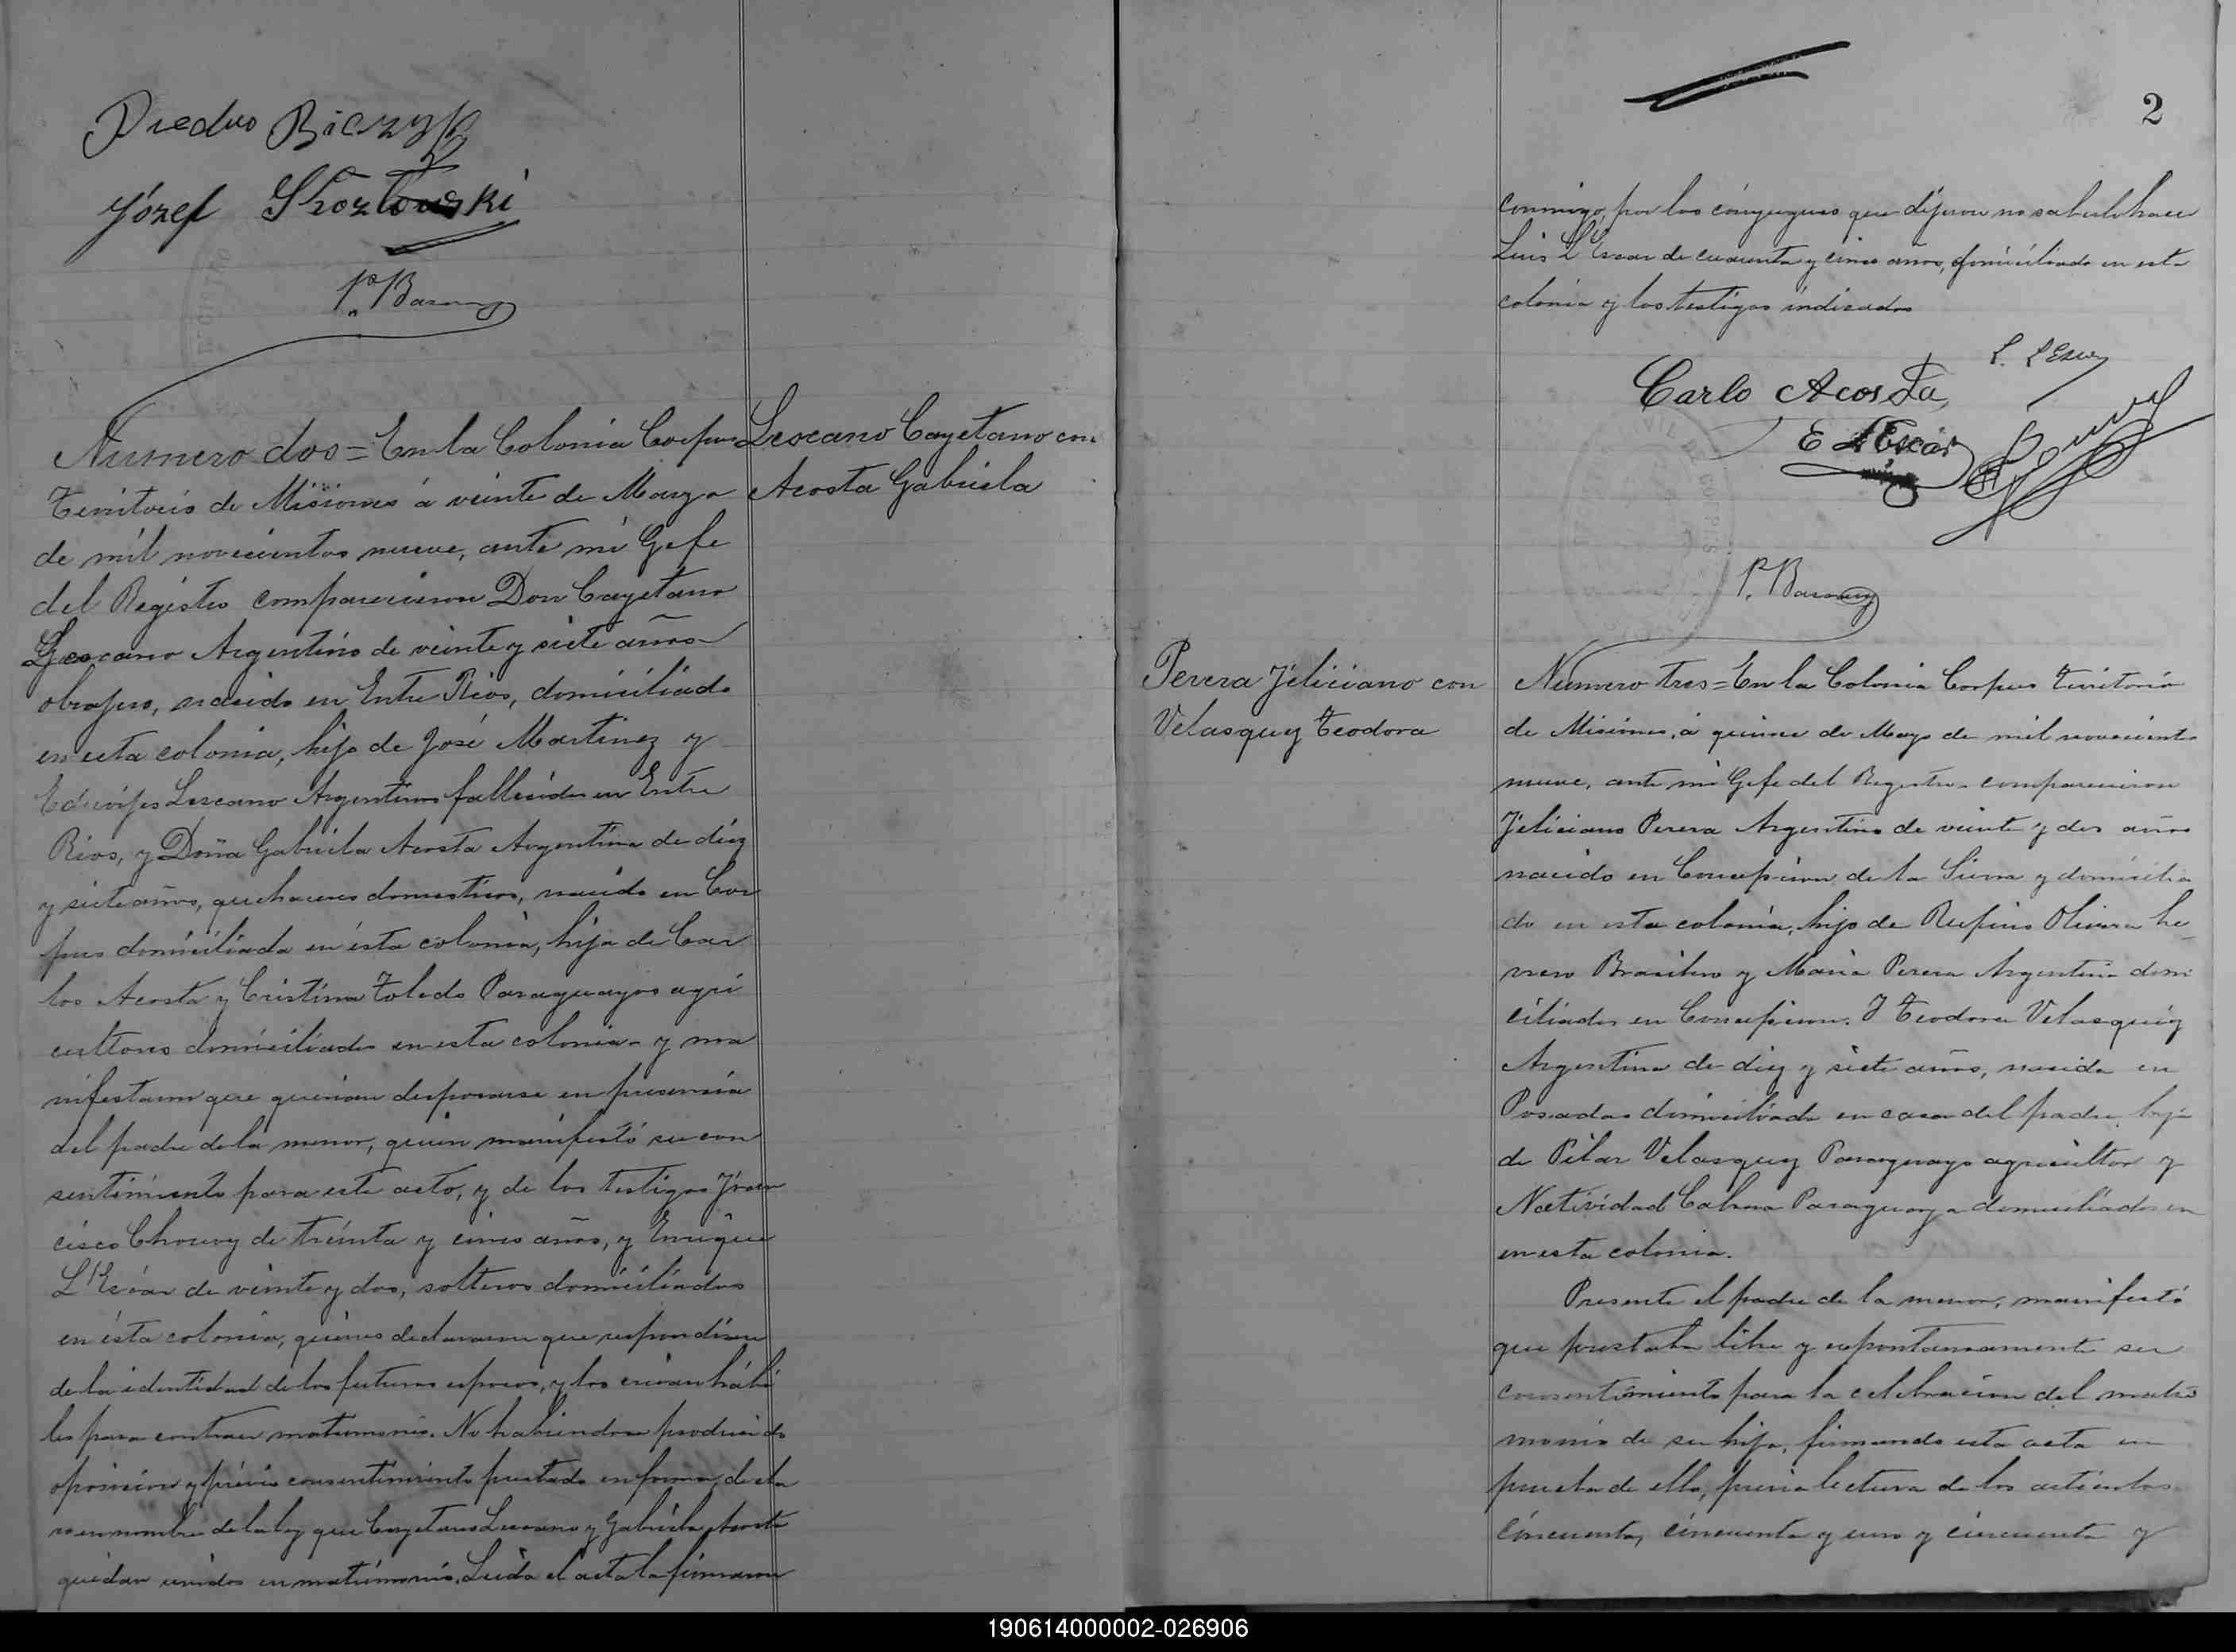 Biczyk
Józef
P. Barney
Numero dos = En la Colonia Corpus
Territorio de Misiones á veinte de Marzo
de mil novecientos nueve, ante mi Gefe
del Registro comparecieron Don Cayetano
Lescano Argentino de veinte y siete años
obrajero, nacido en Entre Rios, domiciliado
en esta colonia, hijo de José Martinez y
Lescano Argentinos fallecidos en Entre
Rios, y Doña Gabriela Acosta Argentina de diez
y siete años, quehaceres domesticos, nacida en Cor
pus domiciliada en ésta colonia, hija de Car
los Acosta y Cristina Toledo Paraguayos agri
cultores domiciliados en esta colonia - y ma
nifestaron que querian desposarse en presencia
del padre de la menor, quien manifestó su con
sentimiento para este acto, y de los testigos Fran
cisco Chouvy de treinta y cinco años, y Enrique
L'Escar de veinte y dos, solteros domiciliados
en ésta colonia, quienes declararon que respondian
de la identidad de los futuros esposos, y los creian hábi
les para contraer matrimonio. No habiendose producido
oposicion y prévio consentimiento prestado en forma, decla
ro en nombre de la ley que Cayetano Lescano y Gabriela Acosta
quedan unidos en matrimonio. Leida el acta la firmaron
Lescano Cayetano con
Acosta Gabriela
2
conmigo, por los cónyugues que dijeron no saberlo hacer
Luis L'Escar de cuarenta y cinco años, domiciliado en esta
colonia y los testigos indicados
L. L'Escar
Carlo Acosta
E L'Escar
P. Barney
Perera Feliciano con
Velasquez Teodora
Numero tres = En la Colonia Corpus Territorio
de Misiones, á quince de Mayo de mil novecientos
nueve, ante mi Gefe del Registro - comparecieron
Feliciano Perera Argentino de veinte y dos años
nacido en Concepcion de la Sierra y domicilia
do en esta colonia, hijo de Rufino Olivera he
rrero Brasilero y Maria Perera Argentina domi
ciliados en Concepcion. Y Teodora Velasquez
Argentina de diez y siete años, nacida en
Posadas domiciliada en casa del padre, hija
de Pilar Velasquez Paraguayo agricultor y
Natividad Cabrera Paraguaya domiciliados en
en esta colonia.
Presente el padre de la menor, manifestó
que prestaba libre y espontaneamente su
consentimiento para la celebracion del matri
monio de su hija, firmando esta acta en
prueba de ello, previa lectura de los articulos
cincuenta, cincuenta y uno y cincuenta y
190614000002-026906